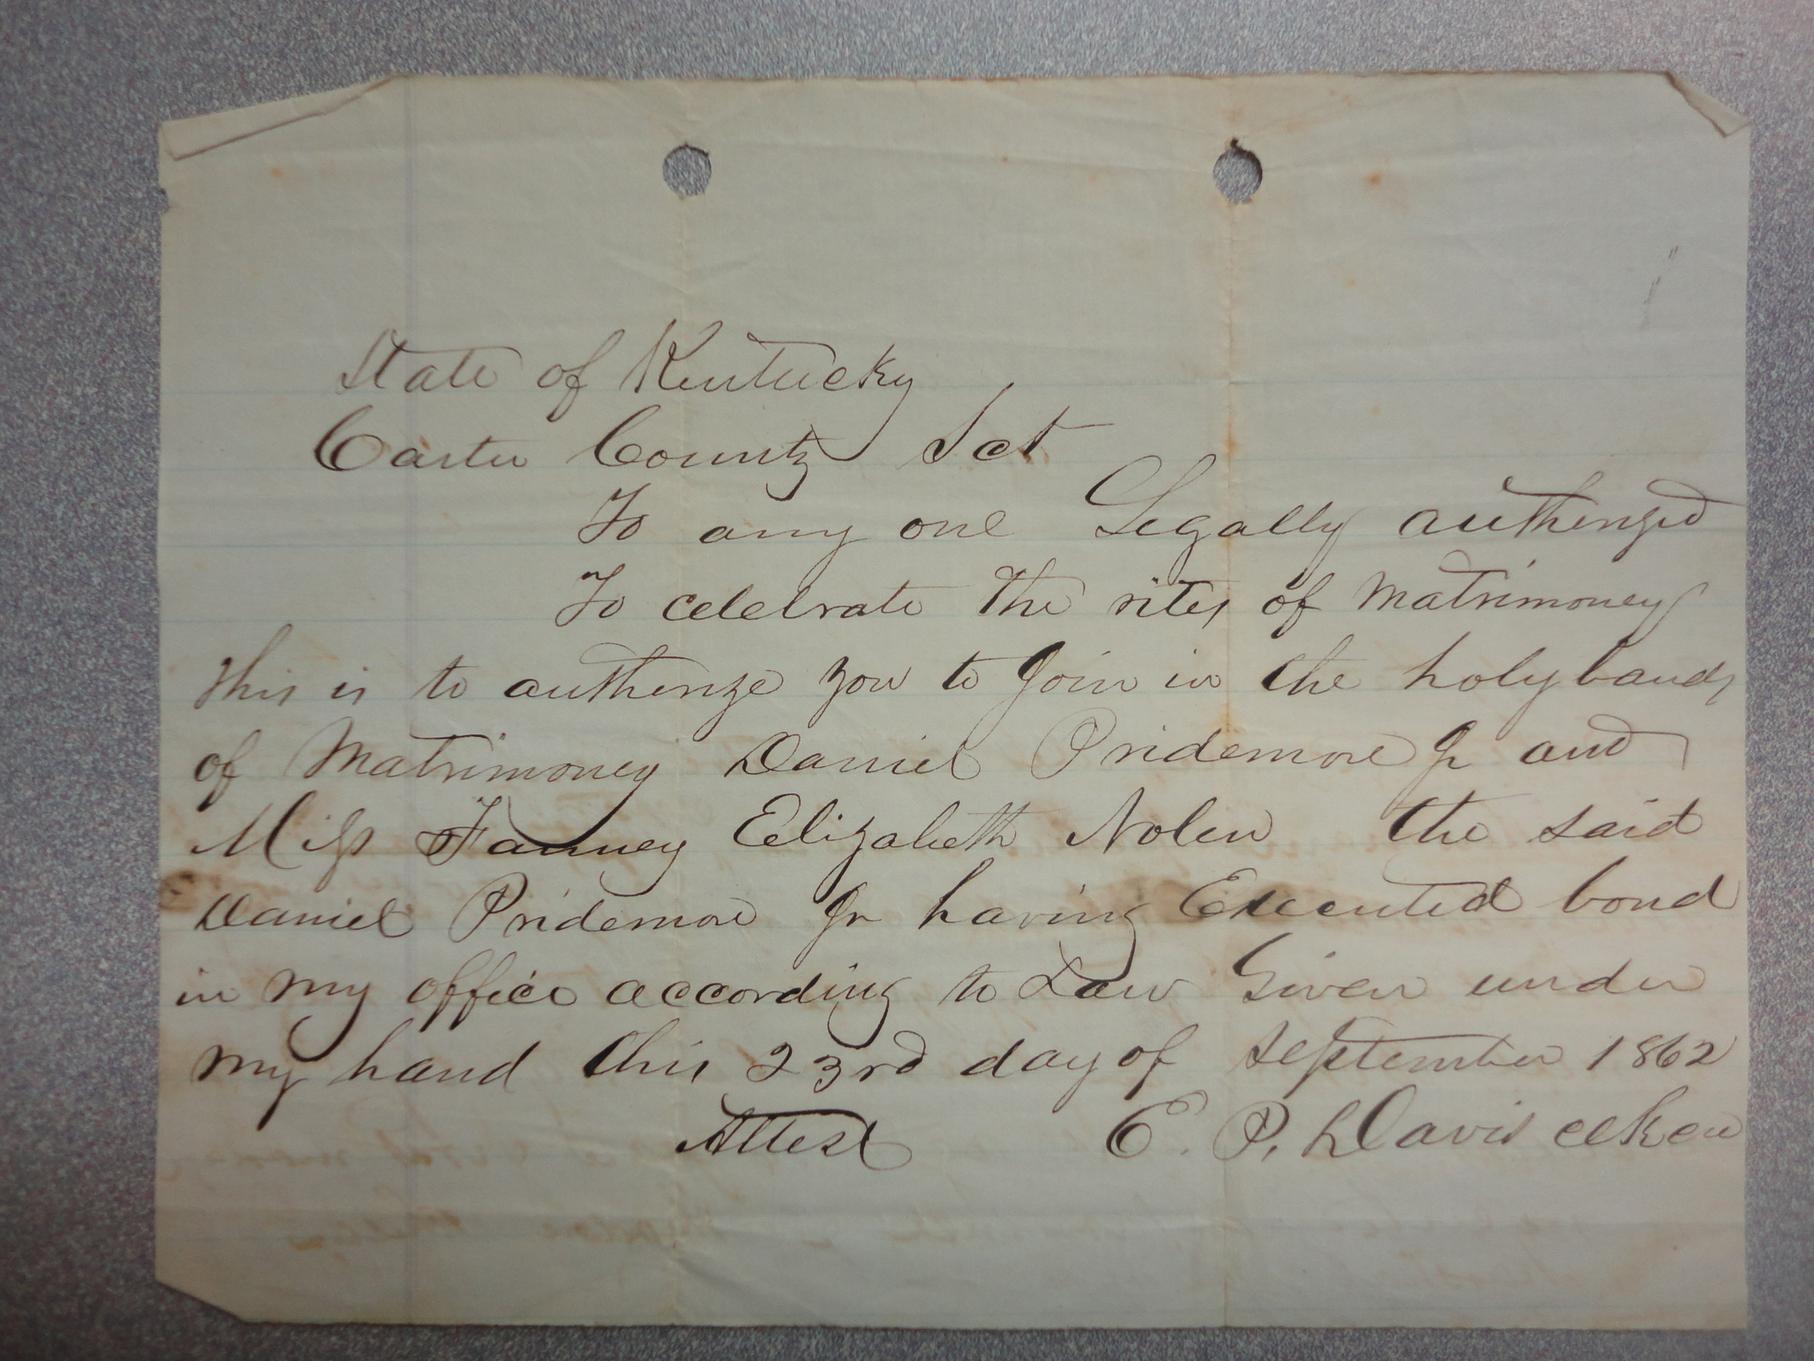 State of Kentucky
Carter County Sct
To any one Legally autherized
To celebrate the rites of Matrimoney
This is to autherize you to Join in the holy bands
of Matrimoney Daniel Pridemore Jr and
Miss Fanney Elizabeth Nolen the said
Daniel Pridemore Jr having Executed bond
in my office according to Law Given under
my hand this 23rd day of September 1862
Attest E. P. Davis